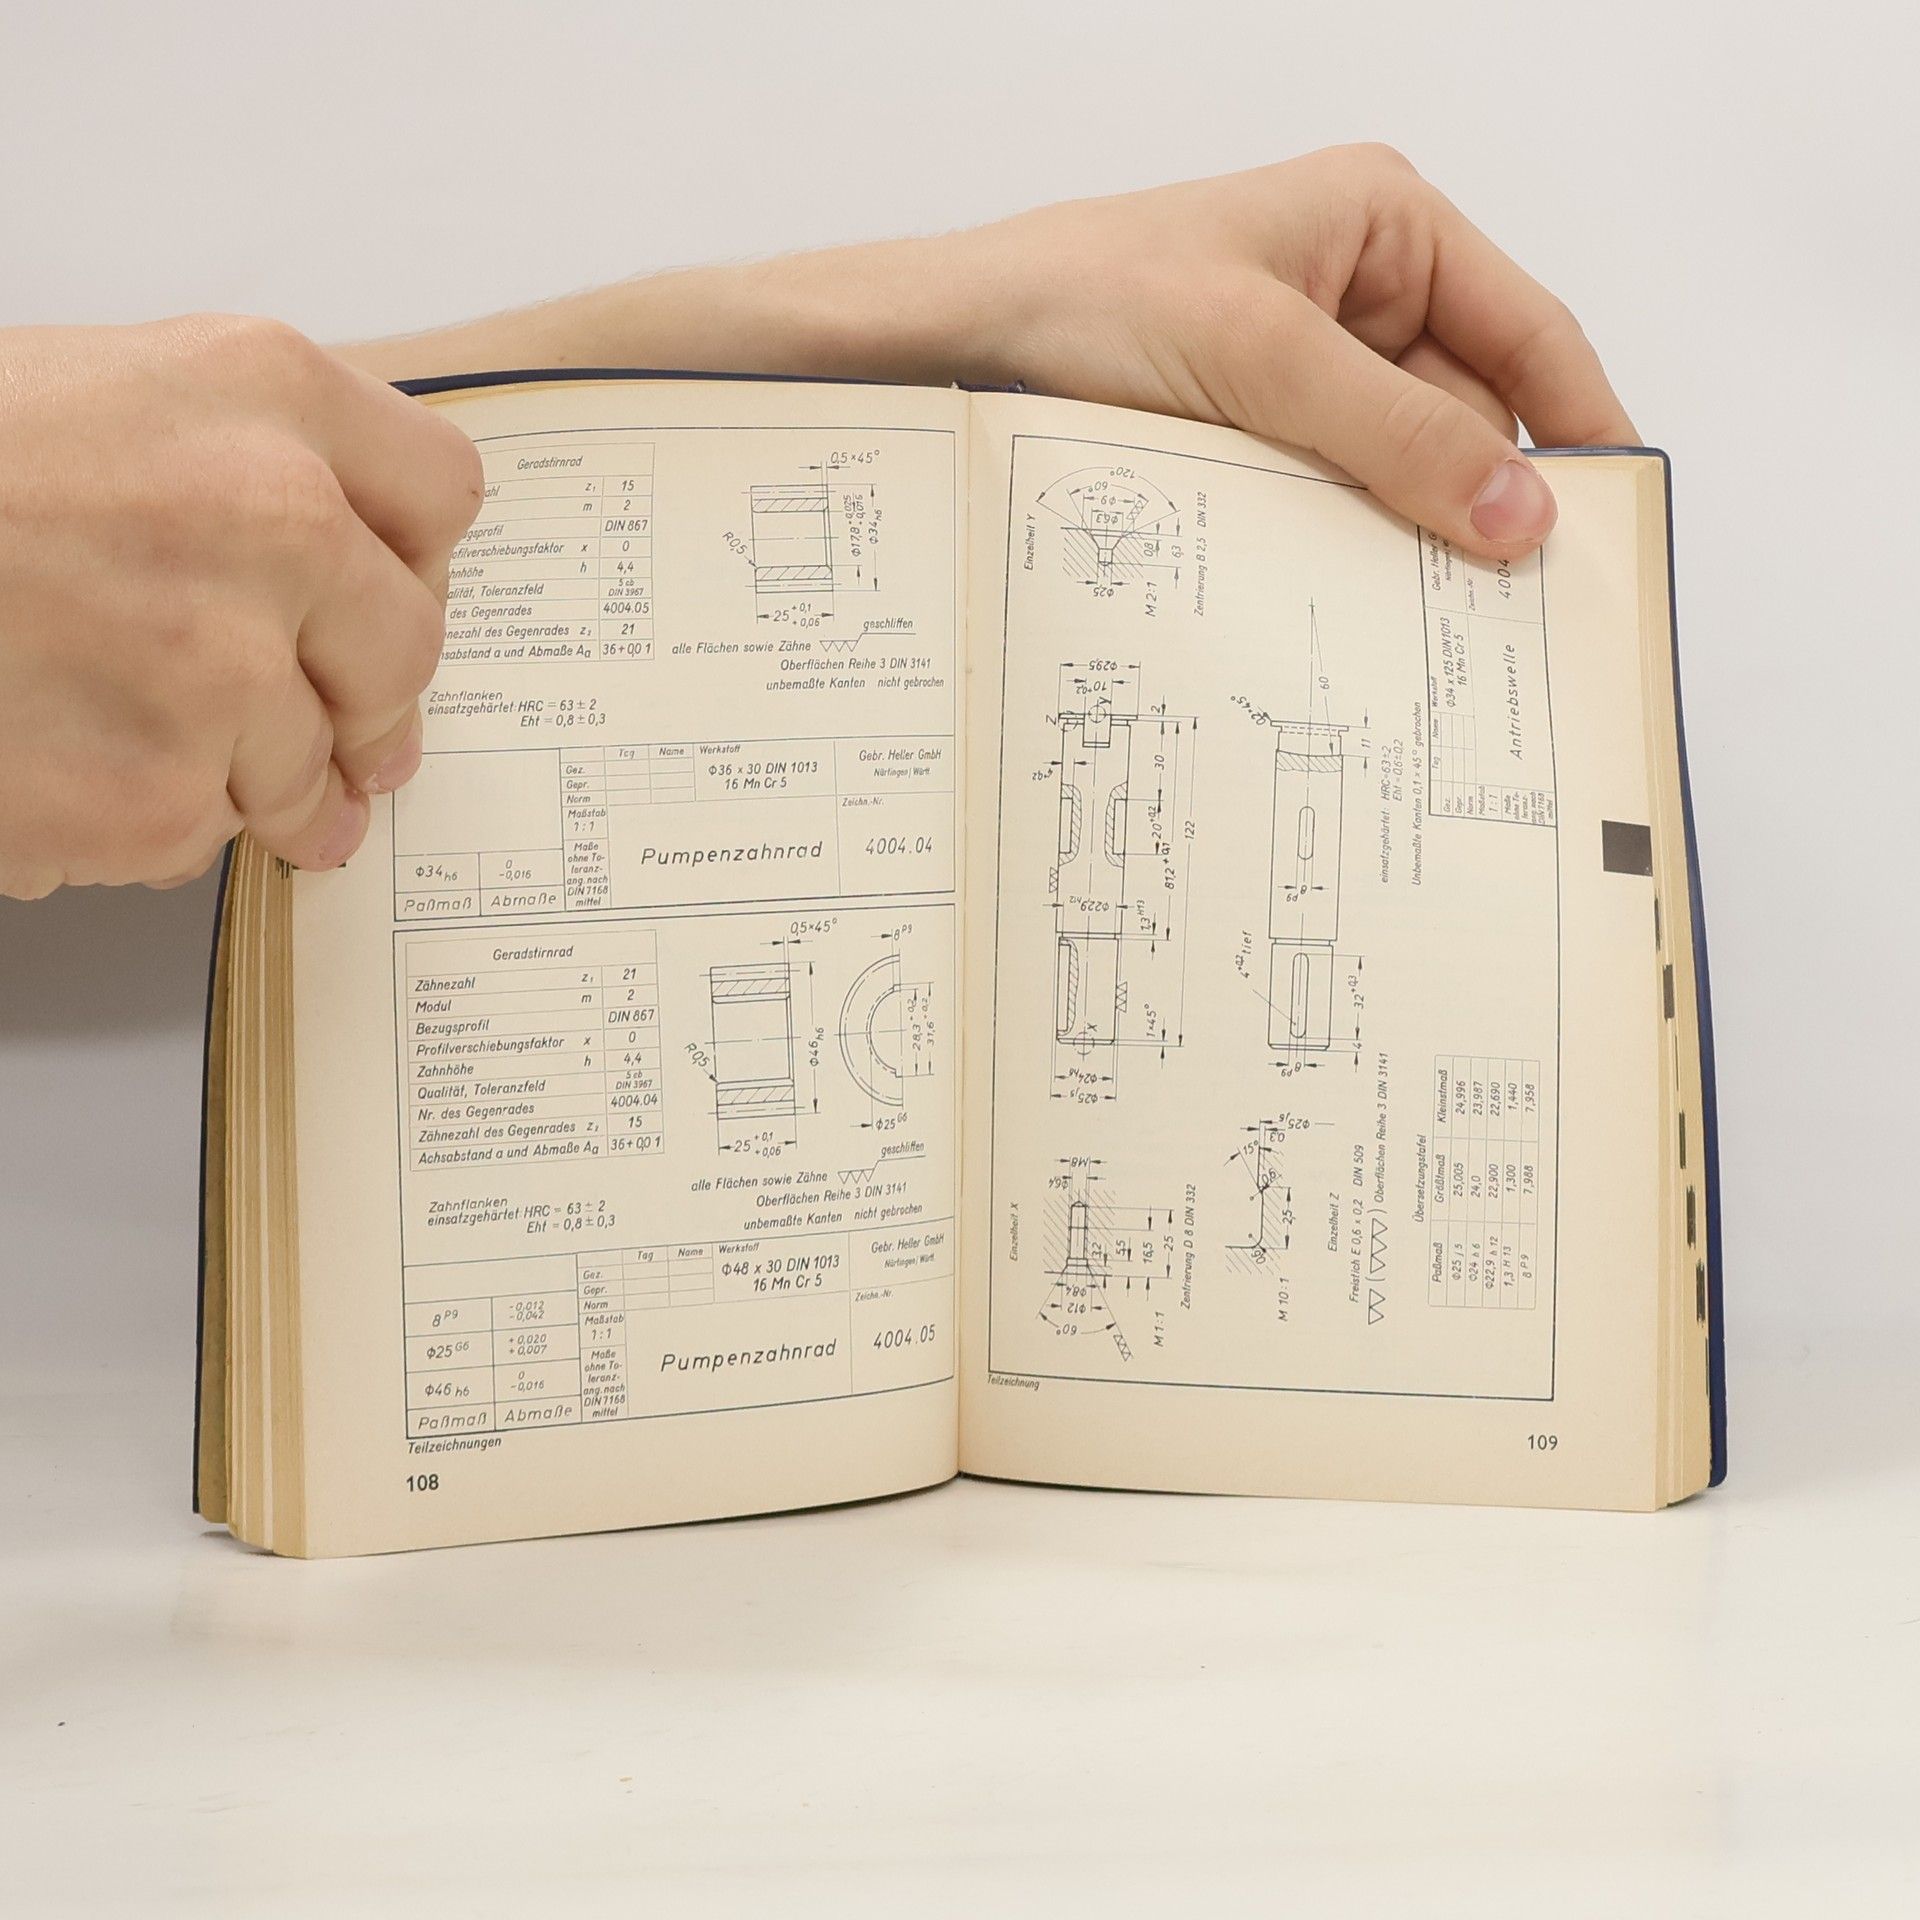 Geradstirnrad
z₁ 15
m 2
DIN 867
ofilverschiebungsfaktor x 0
h 4,4
Toleranzfeld 5 cb DIN 3967
des Gegenrades 4004.05
nezahl des Gegenrades z₂ 21
sabstand a und Abmaße Aa 36+0,01
0,5×45°
R0,5
Φ17,8 +0,025 +0,016
Φ34 h6
25 +0,1 +0,06
geschliffen
alle Flächen sowie Zähne
Oberflächen Reihe 3 DIN 3141
unbemaßte Kanten nicht gebrochen
Zahnflanken
einsatzgehärtet: HRC = 63 ± 2
Eht = 0,8 ± 0,3
Tag Name Werkstoff
Gez.
Gepr.
Norm
Φ36 x 30 DIN 1013
16 Mn Cr 5
Gebr. Heller GmbH
Nürtingen/Württ.
Maßstab
1:1
Maße
ohne To-
leranz-
ang. nach
DIN 7168
mittel
Pumpenzahnrad
Zeichn.-Nr.
4004.04
Φ34 h6 0 -0,016
Paßmaß Abmaße
Geradstirnrad
Zähnezahl z₁ 21
Modul m 2
Bezugsprofil DIN 867
Profilverschiebungsfaktor x 0
Zahnhöhe h 4,4
Qualität, Toleranzfeld 5 cb DIN 3967
Nr. des Gegenrades 4004.04
Zähnezahl des Gegenrades z₂ 15
Achsabstand a und Abmaße Aa 36+0,01
0,5×45°
8 P9
R0,5
Φ46 h6
28,3 +0,2
31,6 +0,2
Φ25 G6
25 +0,1 +0,06
geschliffen
alle Flächen sowie Zähne
Oberflächen Reihe 3 DIN 3141
unbemaßte Kanten nicht gebrochen
Zahnflanken
einsatzgehärtet: HRC = 63 ± 2
Eht = 0,8 ± 0,3
Tag Name Werkstoff
Gez.
Gepr.
Norm
Φ48 x 30 DIN 1013
16 Mn Cr 5
Gebr. Heller GmbH
Nürtingen/Württ.
Maßstab
1:1
Maße
ohne To-
leranz-
ang. nach
DIN 7168
mittel
Pumpenzahnrad
Zeichn.-Nr.
4004.05
8 P9 -0,012 -0,042
Φ25 G6 +0,020 +0,007
Φ46 h6 0 -0,016
Paßmaß Abmaße
Teilzeichnungen
108
Einzelheit X
M8
Φ6,4
3,2
5,5
16,5
25
Φ8,4
Φ12
60°
M 1:1
Zentrierung D 8 DIN 332
Einzelheit Y
120°
60°
Φ9
Φ6,3
0,8
6,3
Φ25
M 2:1
Zentrierung B 2,5 DIN 332
Φ29,5
10 +0,2
Z
Y
2
30
20 +0,2
81,2 + 0,1
122
Φ22,9 h12
1,3 H13
1×45°
X
Φ24 h6
Φ25 j5
0,2×45°
60
11
8 P9
4 +0,2 tief
32 +0,3
4
8 P9
Φ25 j5
0,3
15°
2,5
M 10:1
Einzelheit Z
Freistich E 0,6 x 0,2 DIN 509
Oberflächen Reihe 3 DIN 3141
einsatzgehärtet: HRC=63±2
Eht = 0,6±0,2
Unbemaßte Kanten 0,1 x 45° gebrochen
Übersetzungstafel
Paßmaß Größtmaß Kleinstmaß
Φ25 j 5 25,005 24,996
Φ24 h 6 24,0 23,987
Φ22,9 h 12 22,900 22,690
1,3 H 13 1,300 1,440
8 P 9 7,988 7,958
Tag Name Werkstoff
Gez.
Gepr.
Norm
Φ34 x 125 DIN 1013
16 Mn Cr 5
Gebr. Heller G
Maßstab
1:1
Maße
ohne To-
leranz-
ang. nach
DIN 7168
mittel
Antriebswelle
Zeichn.-Nr.
4004
Teilzeichnung
109